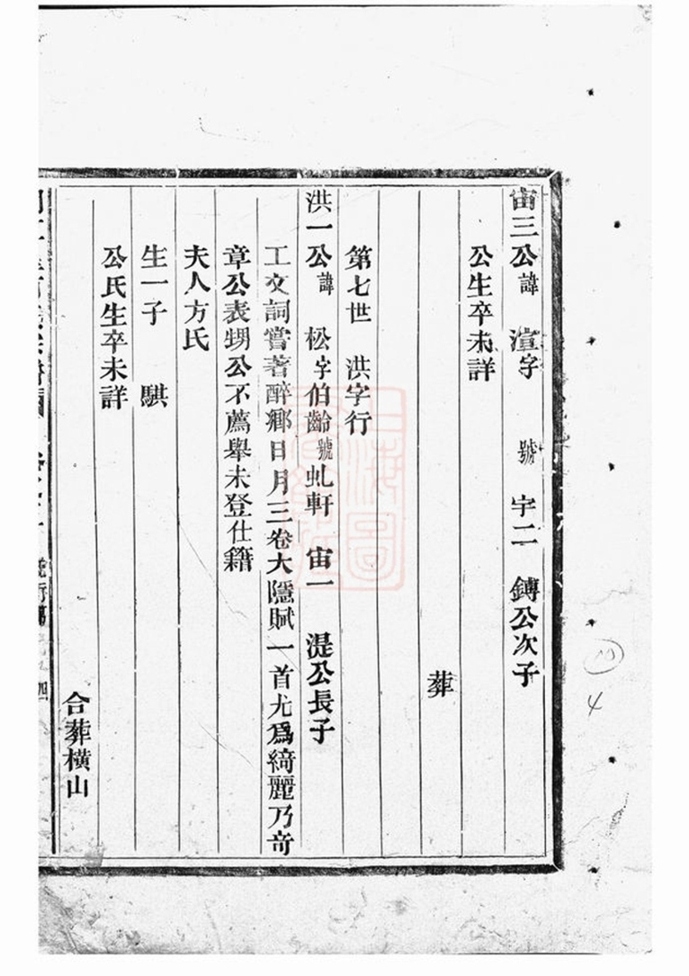 宙三公諱 渲字 號 宇二 鎛公次子
公生卒未詳
葬
第七世 洪字行
洪一公諱 松字伯齡號虬軒 宙一 湜公長子
工文詞嘗著醉鄉日月三卷大隱賦一首尤爲綺麗乃奇
章公表甥公不薦舉未登仕籍
夫人方氏
生一子 騏
公氏生卒未詳
合葬橫山
4